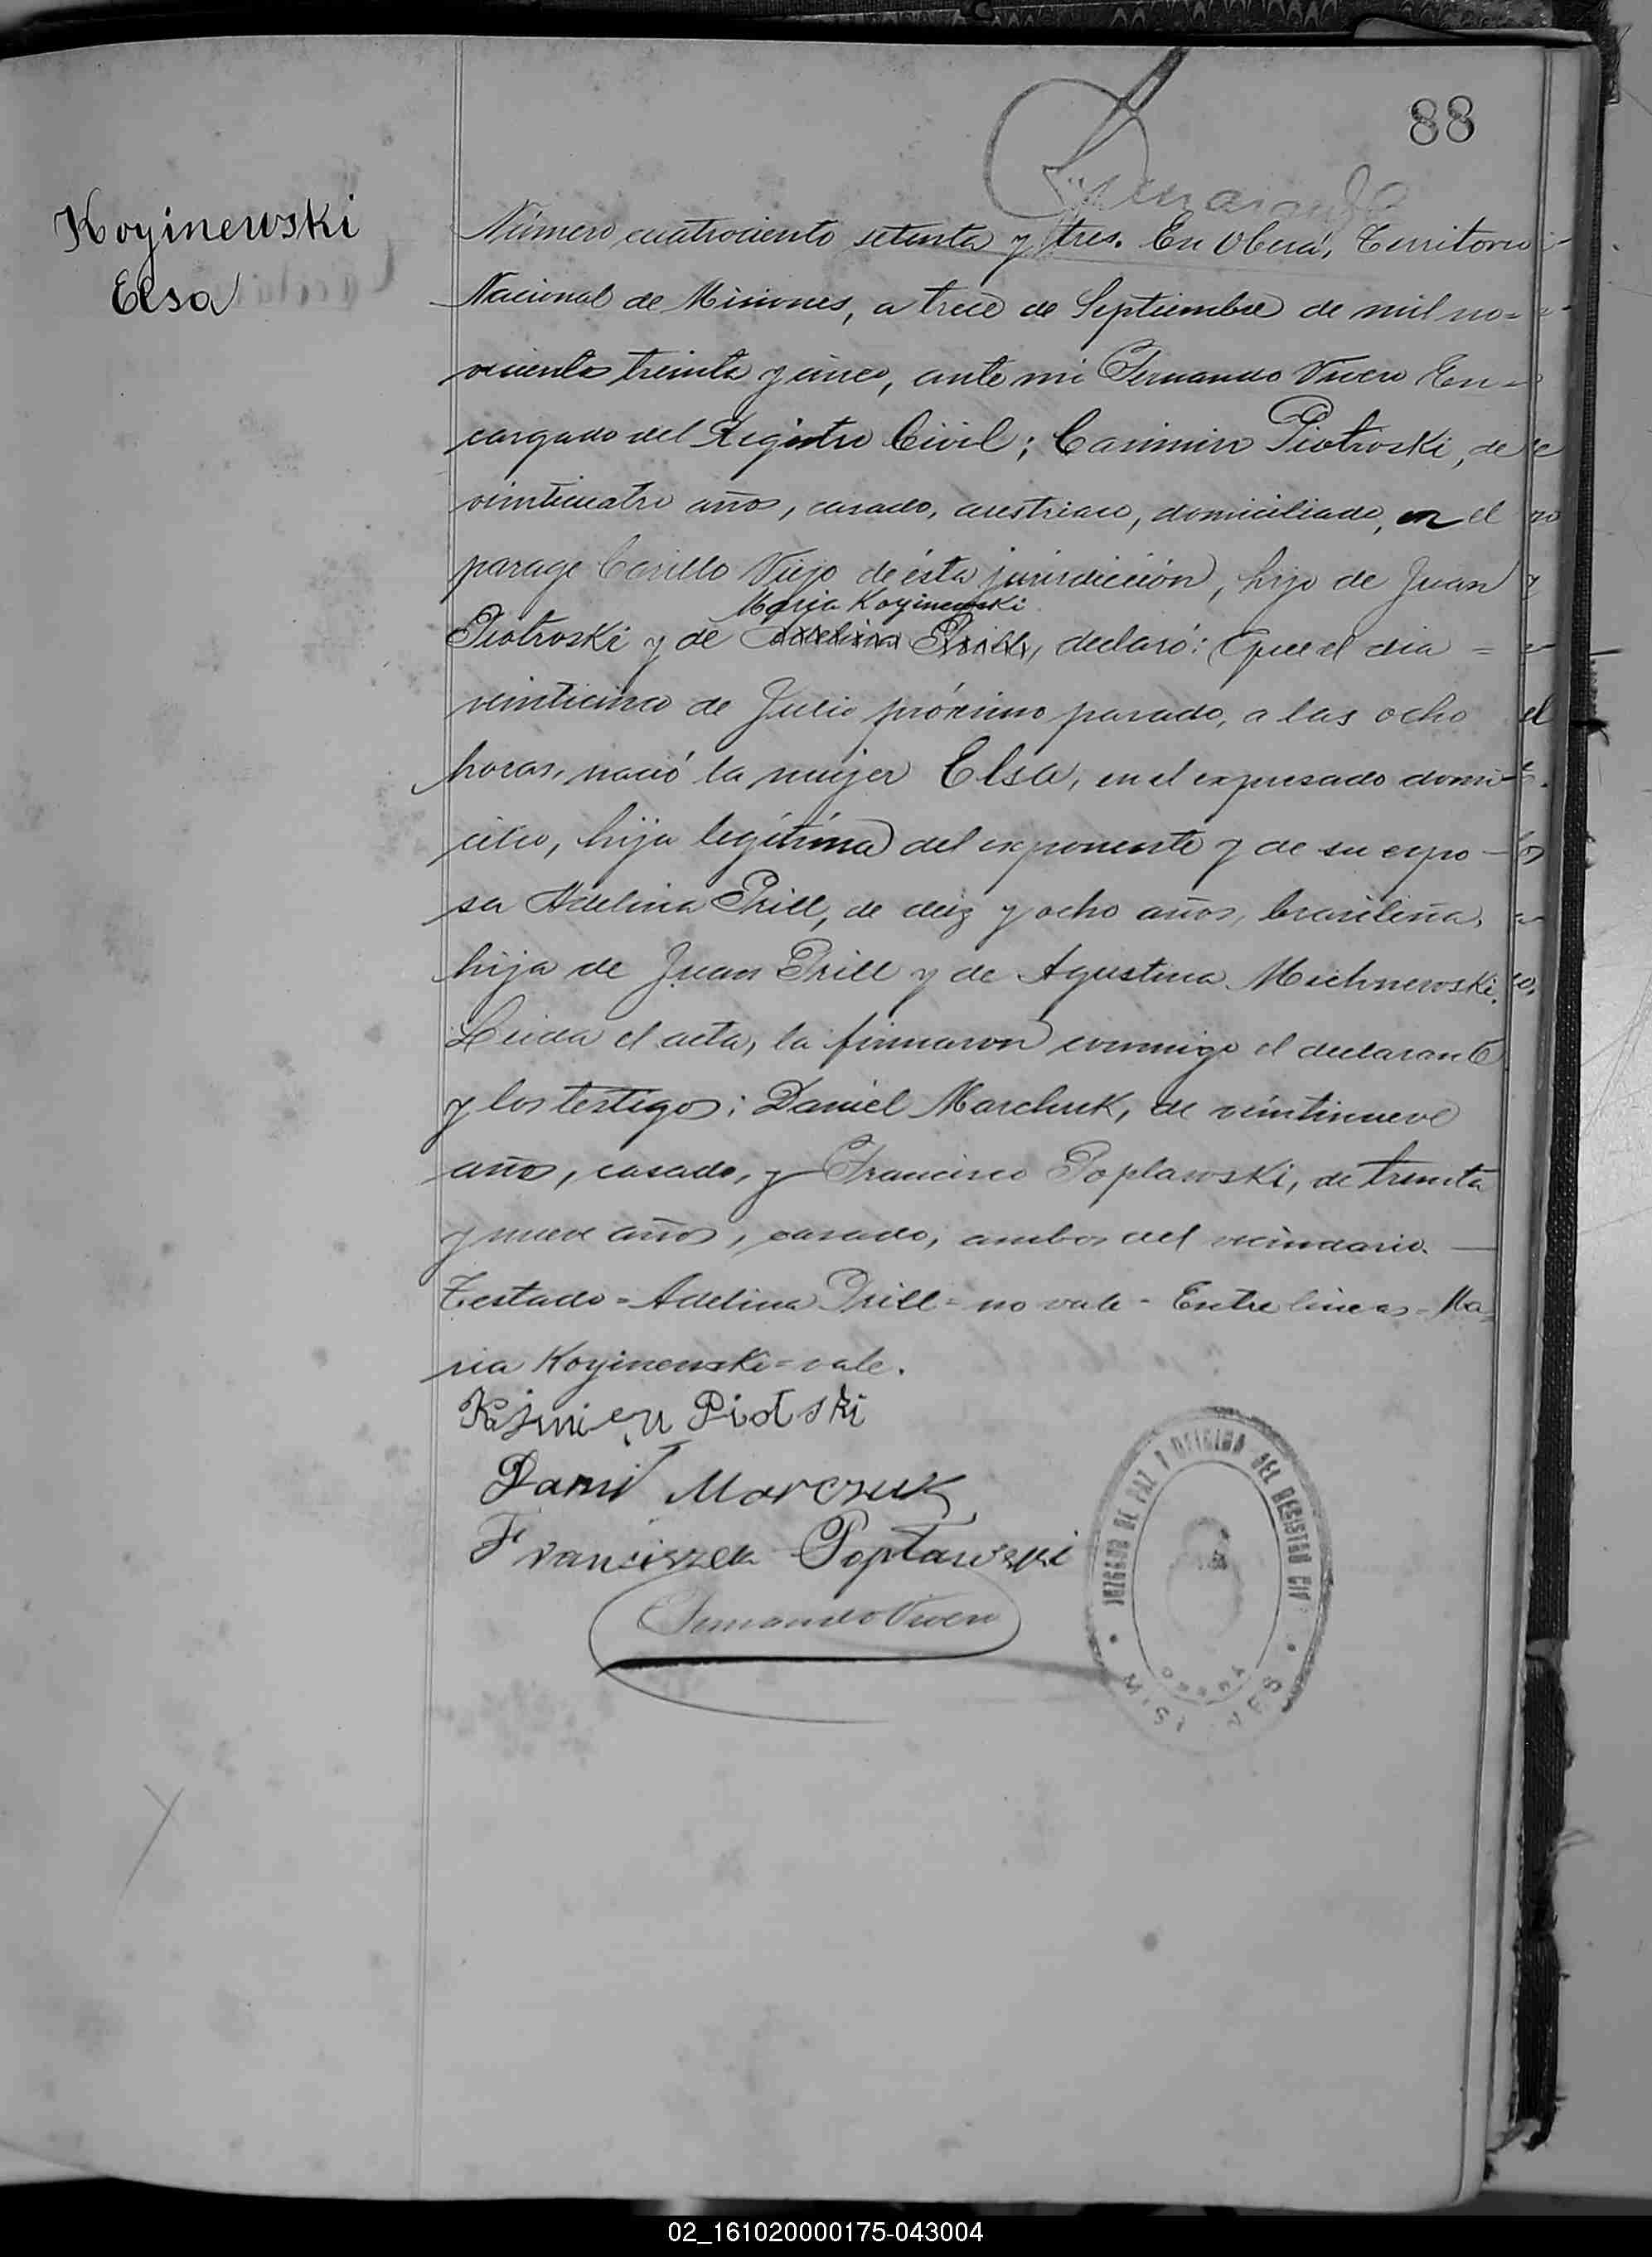 88
Koyinewski
Elsa
Número cuatrociento setenta y tres. En Oberá, Territorio
Nacional de Misiones, a trece de Septiembre de mil no=
vecientos treinta y cinco, ante mi Fernando Vivero En=
cargado del Registro Civil; Casimiro Piotroski, de
veinticuatro años, casado, austriaco, domiciliado, en el
parage Cerillo Viejo de ésta jurisdicción, hijo de Juan
Maria Koyinewski
Piotroski y de Adelina Prill, declaró: Que el dia =
veinticinco de Julio próximo pasado, a las ocho
horas, nació la mujer Elsa, en el expresado domi-
cilio, hija legítima del exponente y de su espo-
sa Adelina Prill, de diez y ocho años, brasileña,
hija de Juan Prill y de Agustina Michnewski.
Leida el acta, la firmaron conmigo el declarante
y los testigos: Daniel Marchuk, de veintinueve
años, casado, y Francisco Poplawski, de treinta
y nueve años, casado, ambos del vecindario. —
Testado = Adelina Prill = no vale - Entre lineas = Ma=
ria Koyinewski = vale.
Kazmierz Piotski
Danił Marczuk
Franciszek Popławski
Fernando Vivero
JUZGADO DE PAZ Y OFICINA DEL REGISTRO CIV
OBERA